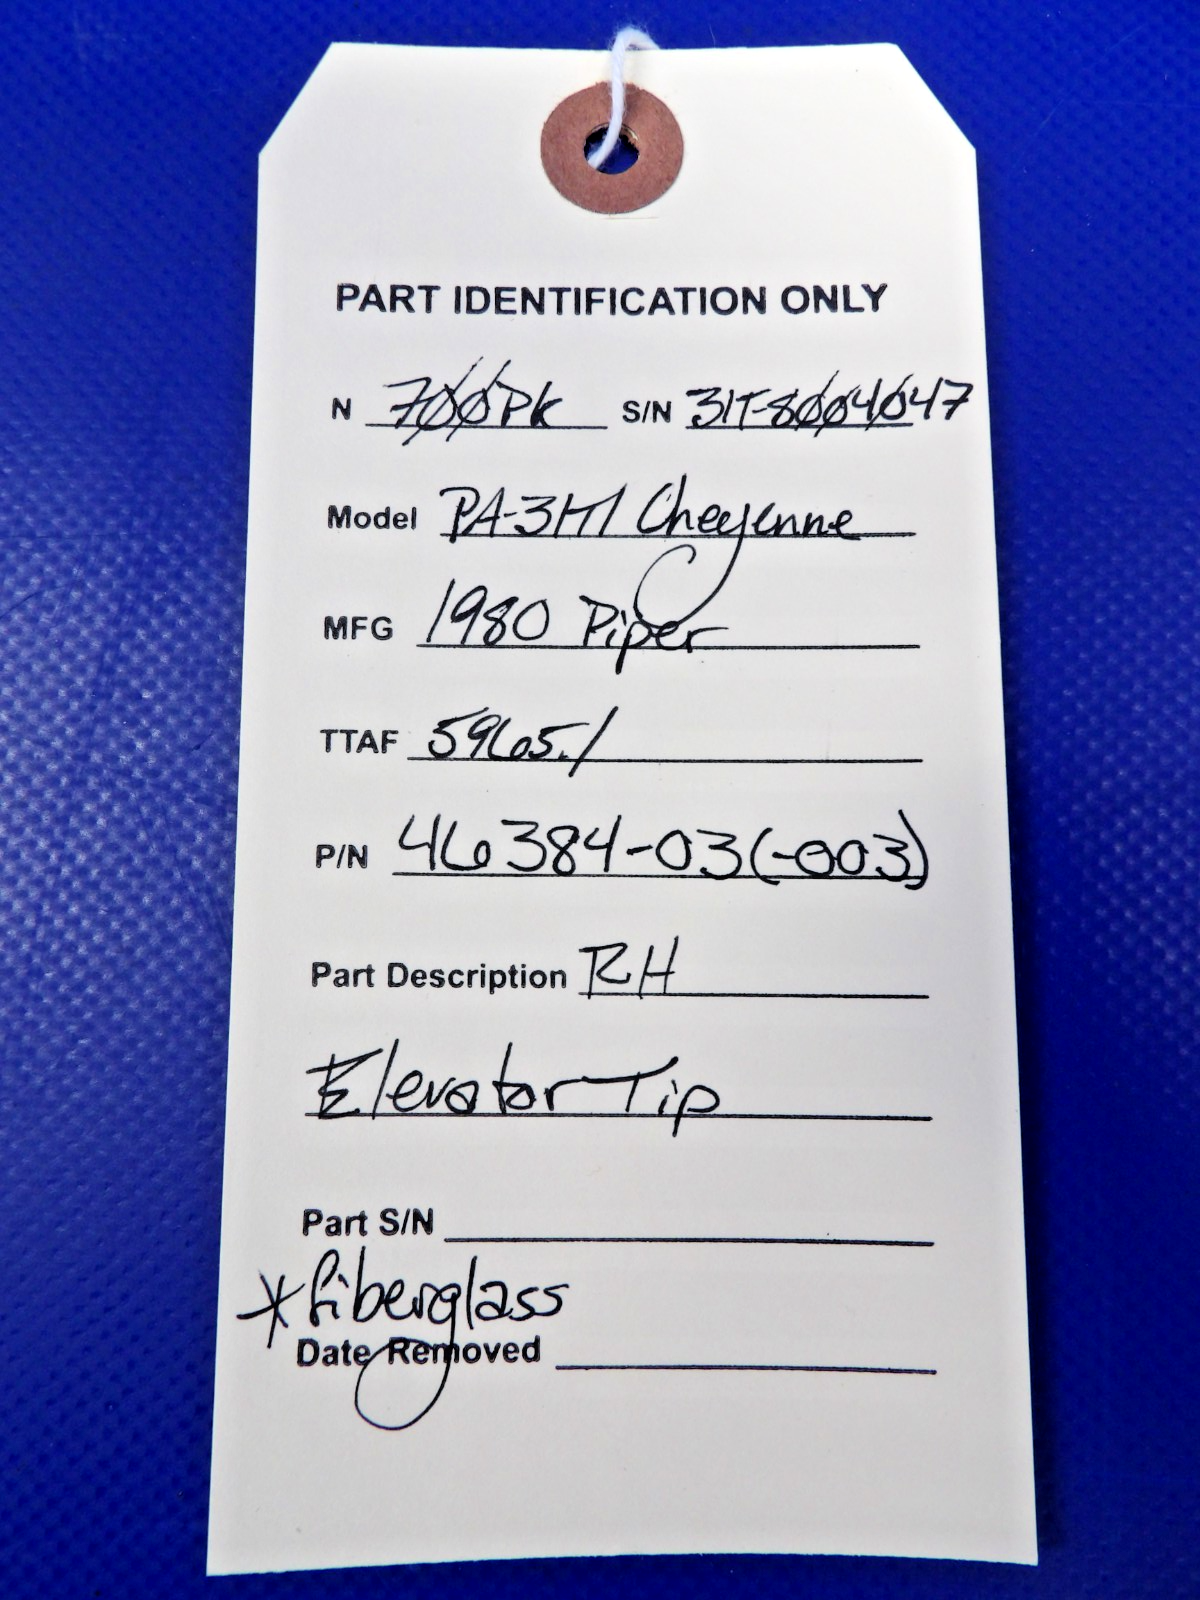 PART IDENTIFICATION ONLY
N 700PK S/N 31T-8004047
Model PA-31T1 Cheyenne
MFG 1980 Piper
TTAF 5965.1
P/N 46384-03(-003)
Part Description RH
Elevator Tip
Part S/N
*fiberglass
Date Removed